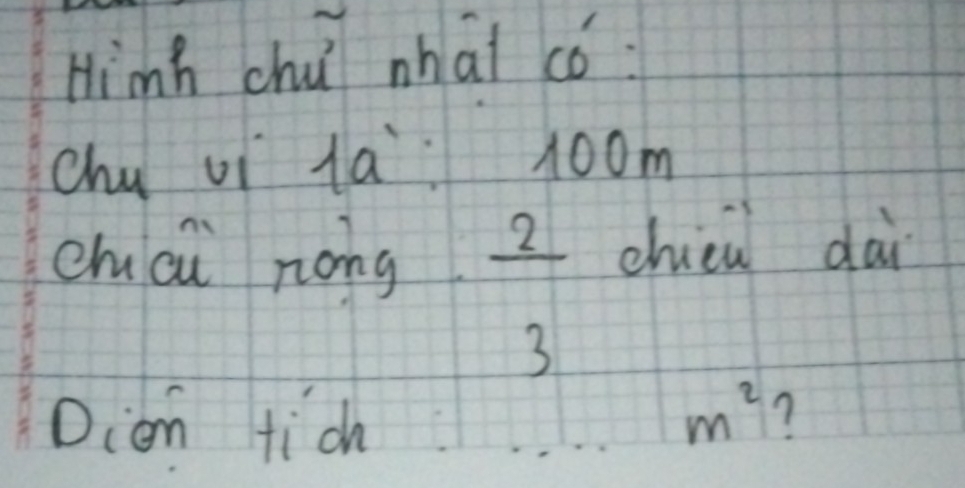 Hình chữ nhật có:
Chu vi là: 100m
Chiều rộng 2/3 chiều dài
Diện tích : ..... m²?